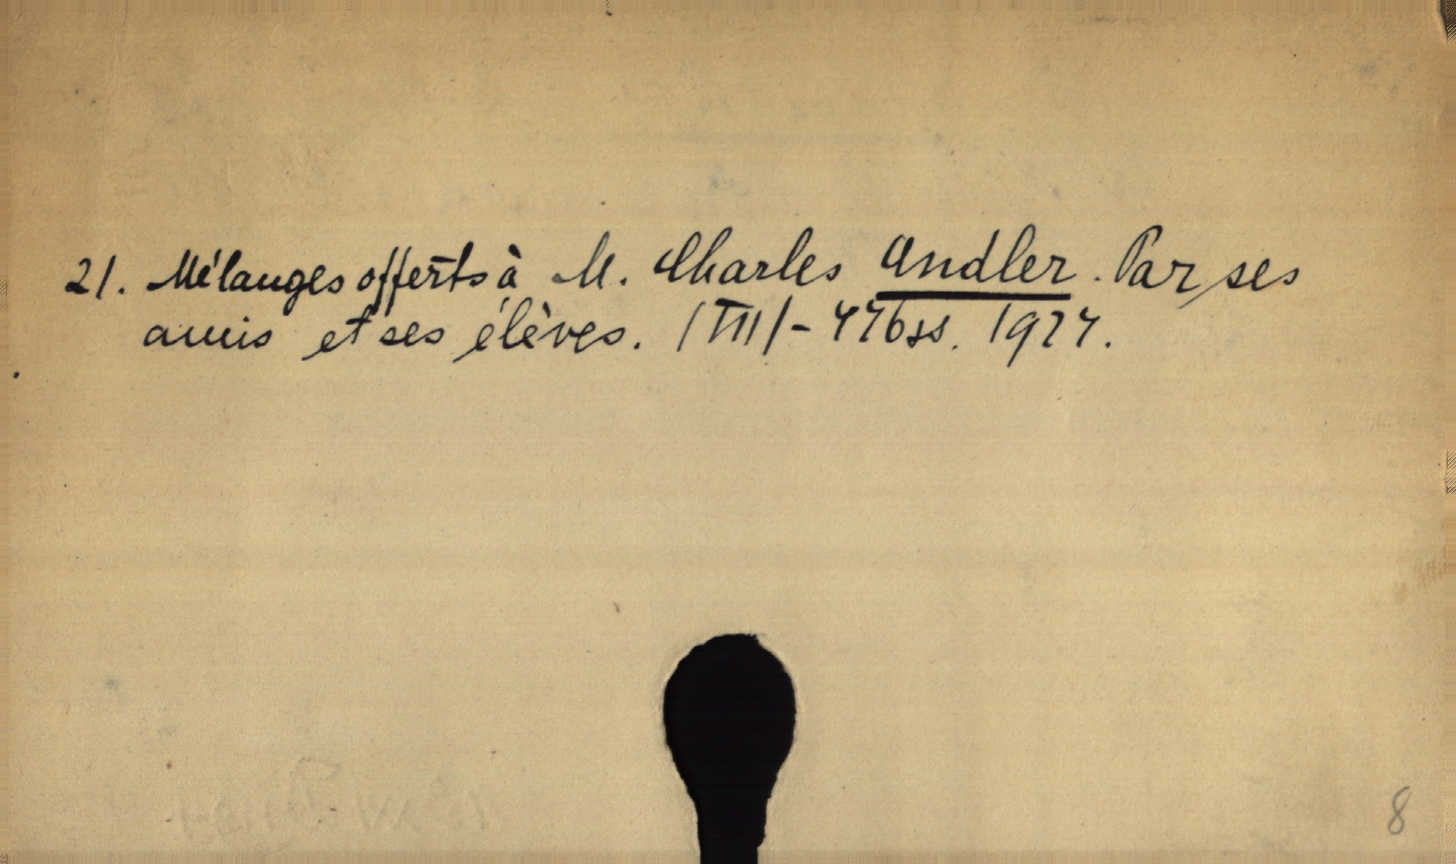 21. Mélanges offerts à M. Charles Andler. Par ses
amis et ses élèves. 1924.
8